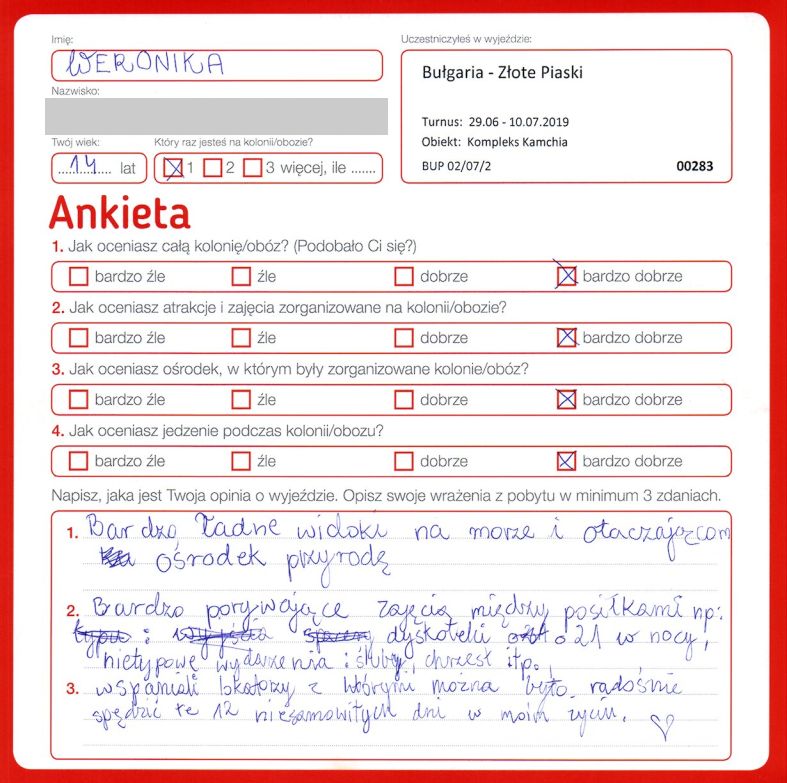 Imię:
WERONIKA
Nazwisko:
Twój wiek:
14 lat
Który raz jesteś na kolonii/obozie?
1 2 3 więcej, ile .......
Uczestniczyłeś w wyjeździe:
Bułgaria - Złote Piaski
Turnus: 29.06 - 10.07.2019
Obiekt: Kompleks Kamchia
BUP 02/07/2 00283
Ankieta
1. Jak oceniasz całą kolonię/obóz? (Podobało Ci się?)
bardzo źle źle dobrze bardzo dobrze
2. Jak oceniasz atrakcje i zajęcia zorganizowane na kolonii/obozie?
bardzo źle źle dobrze bardzo dobrze
3. Jak oceniasz ośrodek, w którym były zorganizowane kolonie/obóz?
bardzo źle źle dobrze bardzo dobrze
4. Jak oceniasz jedzenie podczas kolonii/obozu?
bardzo źle źle dobrze bardzo dobrze
Napisz, jaka jest Twoja opinia o wyjeździe. Opisz swoje wrażenia z pobytu w minimum 3 zdaniach.
1. Bardzo ładne widoki na morze i otaczającom
ośrodek przyrodę
2. Bardzo porywające zajęcia między posiłkami np:
: dyskoteki o 21 w nocy,
nietypowe wydarzenia: śluby, chrzest itp.
3. wspaniali lokatorzy z którymi można było radośnie
spędzić te 12 niesamowitych dni w moim życiu.